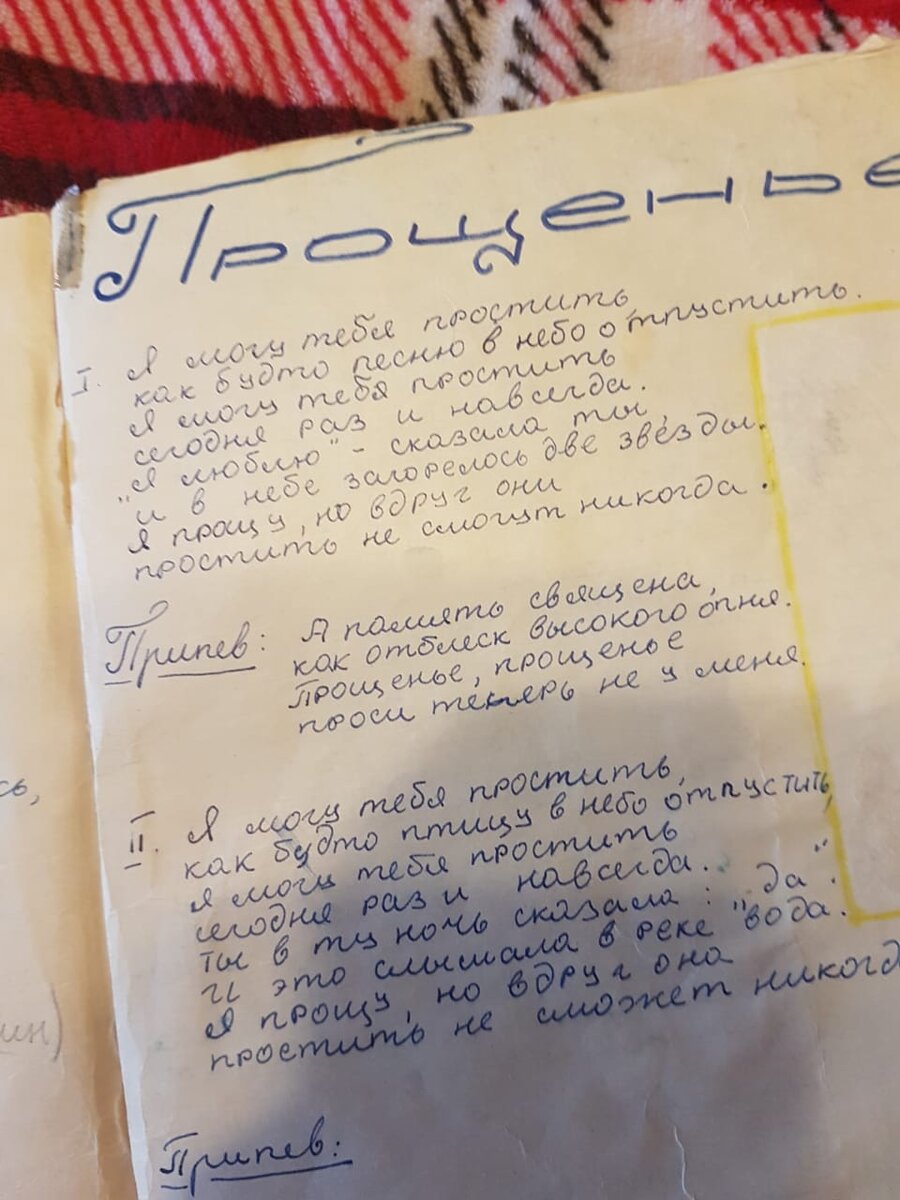 Прощенье
I. Я могу тебя простить
как будто песню в небо отпустить.
Я могу тебя простить
сегодня раз и навсегда.
„Я люблю" - сказала ты,
и в небе загорелось две звезды.
Я прощу, но вдруг они
простить не смогут никогда.
Припев: А память священа,
как отблеск высокого огня.
Прощенье, прощенье
проси теперь не у меня.
II. Я могу тебя простить,
как будто птицу в небо отпустить,
Я могу тебя простить
сегодня раз и навсегда.
Ты в ту ночь сказала: „да".
И это слышала в реке вода.
Я прощу, но вдруг она
простить не сможет никогд
Припев:
сь,
ин)